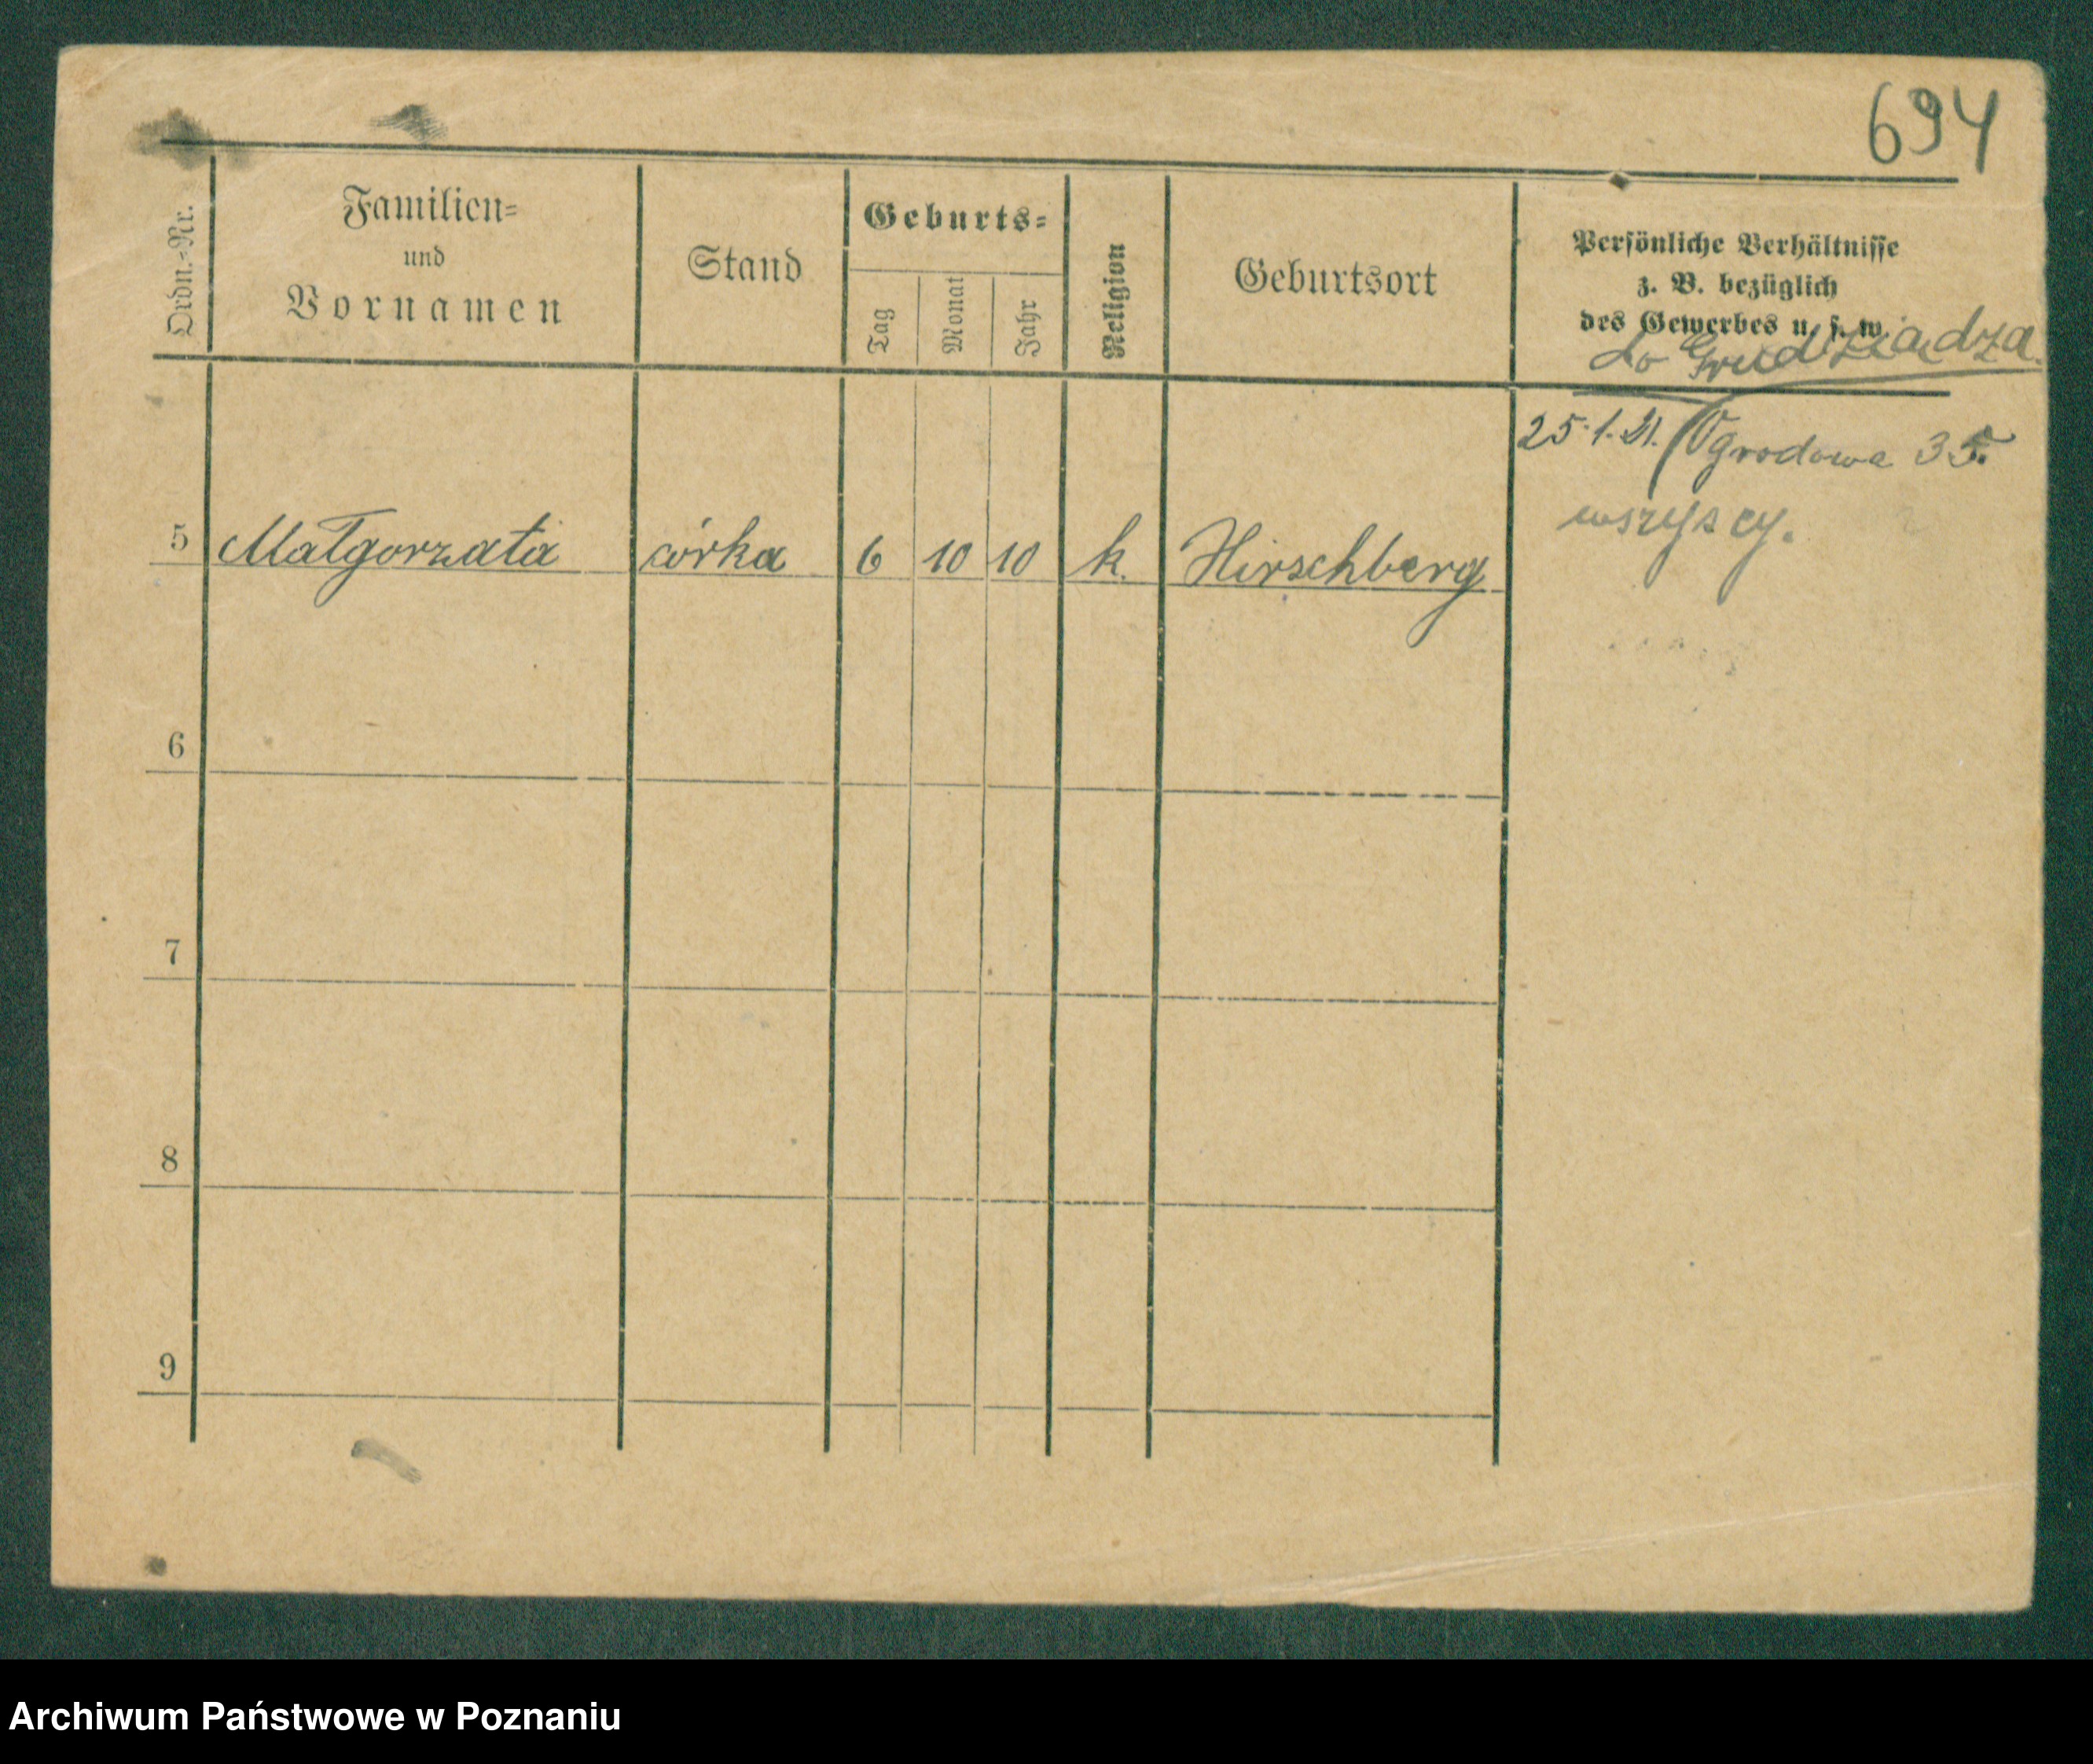 694
Ordn.-Nr.
Familien-
und
Vornamen
Stand
Geburts-
Tag
Monat
Jahr
Religion
Geburtsort
Persönliche Verhältnisse
z. B. bezüglich
des Gewerbes u. s. w.
do Grudziądza.
25.1.21. Ogrodowa 35.
wszyscy.
5 Małgorzata córka 6 10 10 k. Hirschberg
6
7
8
9
Archiwum Państwowe w Poznaniu